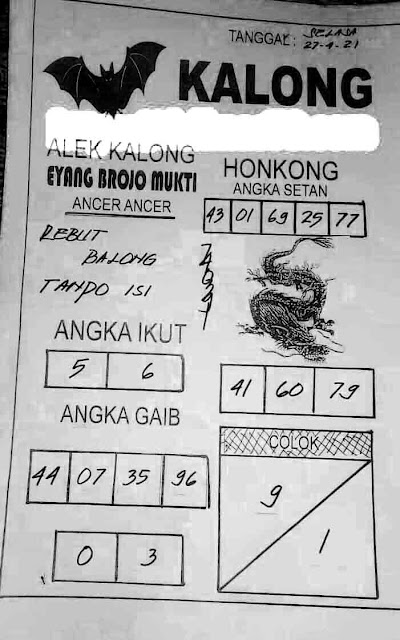 TANGGAL: SELASA
27-4-21
KALONG
ALEK KALONG
EYANG BROJO MUKTI
ANCER ANCER
REBUT
BALONG
TANDO ISI
HONKONG
ANGKA SETAN
43 01 69 25 77
ANGKA IKUT
5 6
41 60 79
ANGKA GAIB
44 07 35 96
0 3
COLOK
9
1